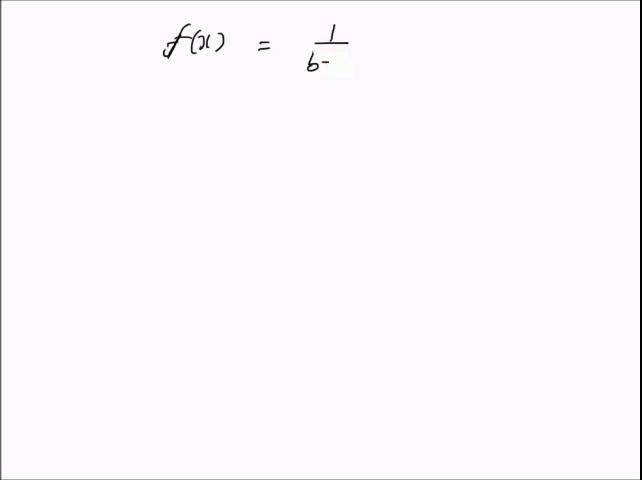 f(x) = 1/b-